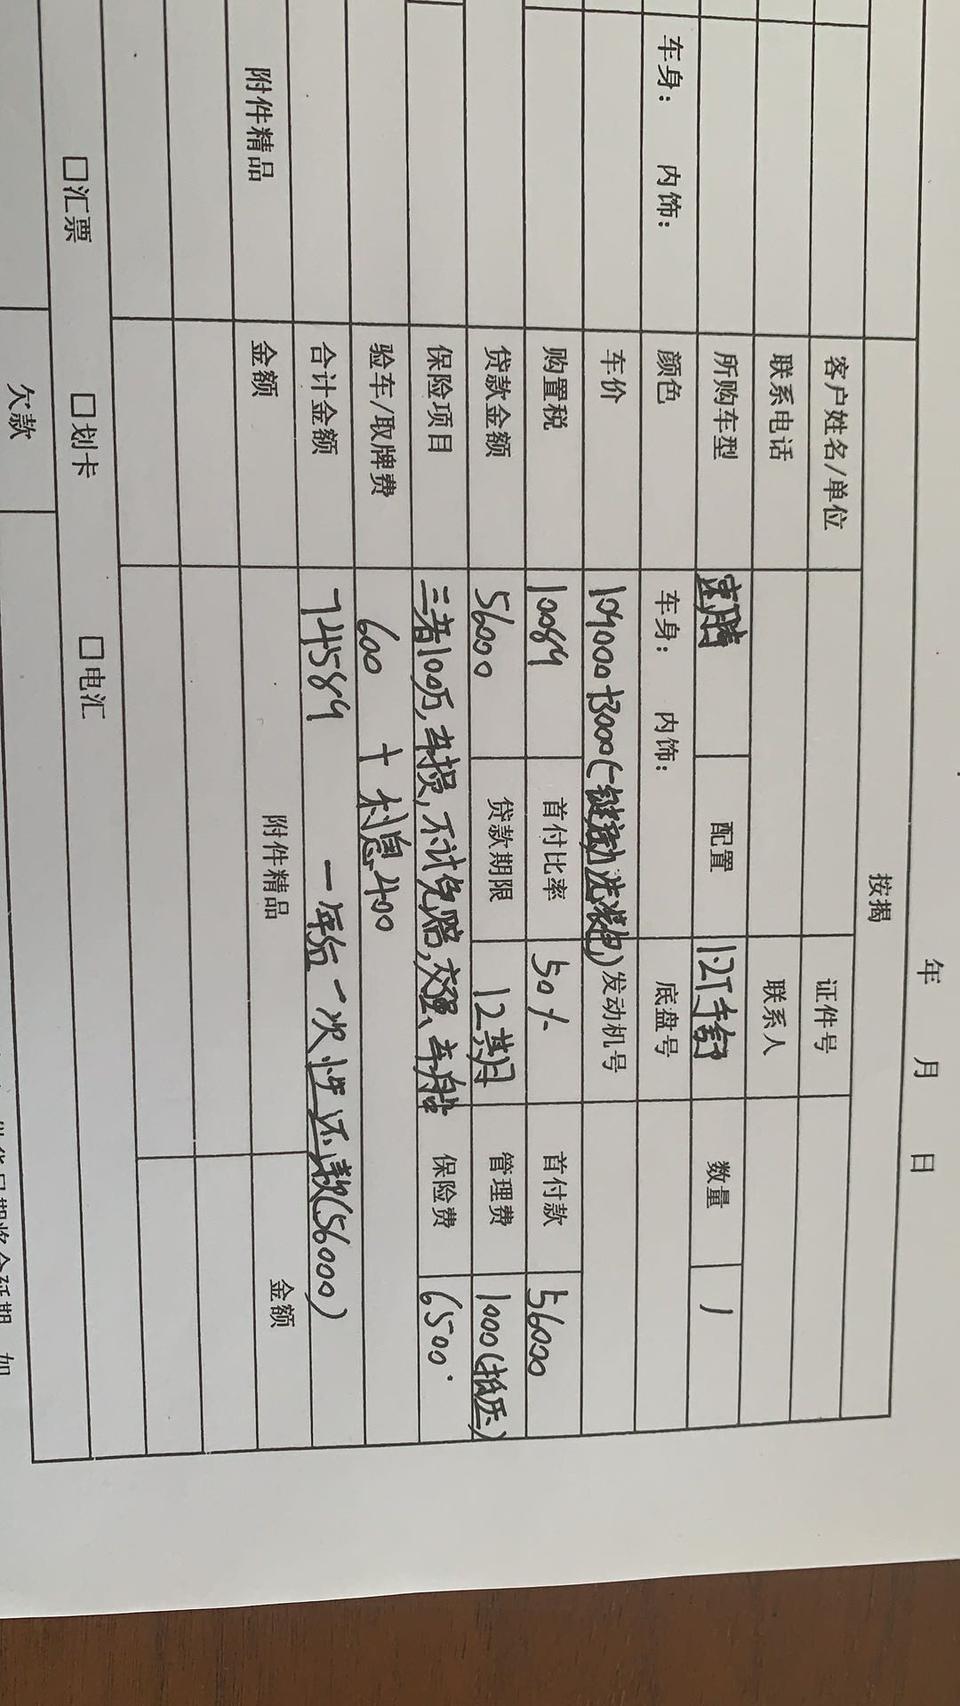 年 月 日
按揭
客户姓名/单位 证件号
联系电话 联系人
所购车型 速腾 配置 1.2T手舒 数量 1
车身: 内饰: 颜色 车身: 内饰: 底盘号
车价 109000+3000(一键启动,泡浪包) 发动机号
购置税 10089 首付比率 50% 首付款 56000
贷款金额 56000 贷款期限 12期 管理费 1000(抵压)
保险项目 三者100万,车损,不计免赔,交强、车船 保险费 6500
验车/取牌费 600 + 利息400
合计金额 74589 一年后一次性还款(56000)
附件精品 金额 附件精品 金额
□汇票 □划卡 □电汇
欠款